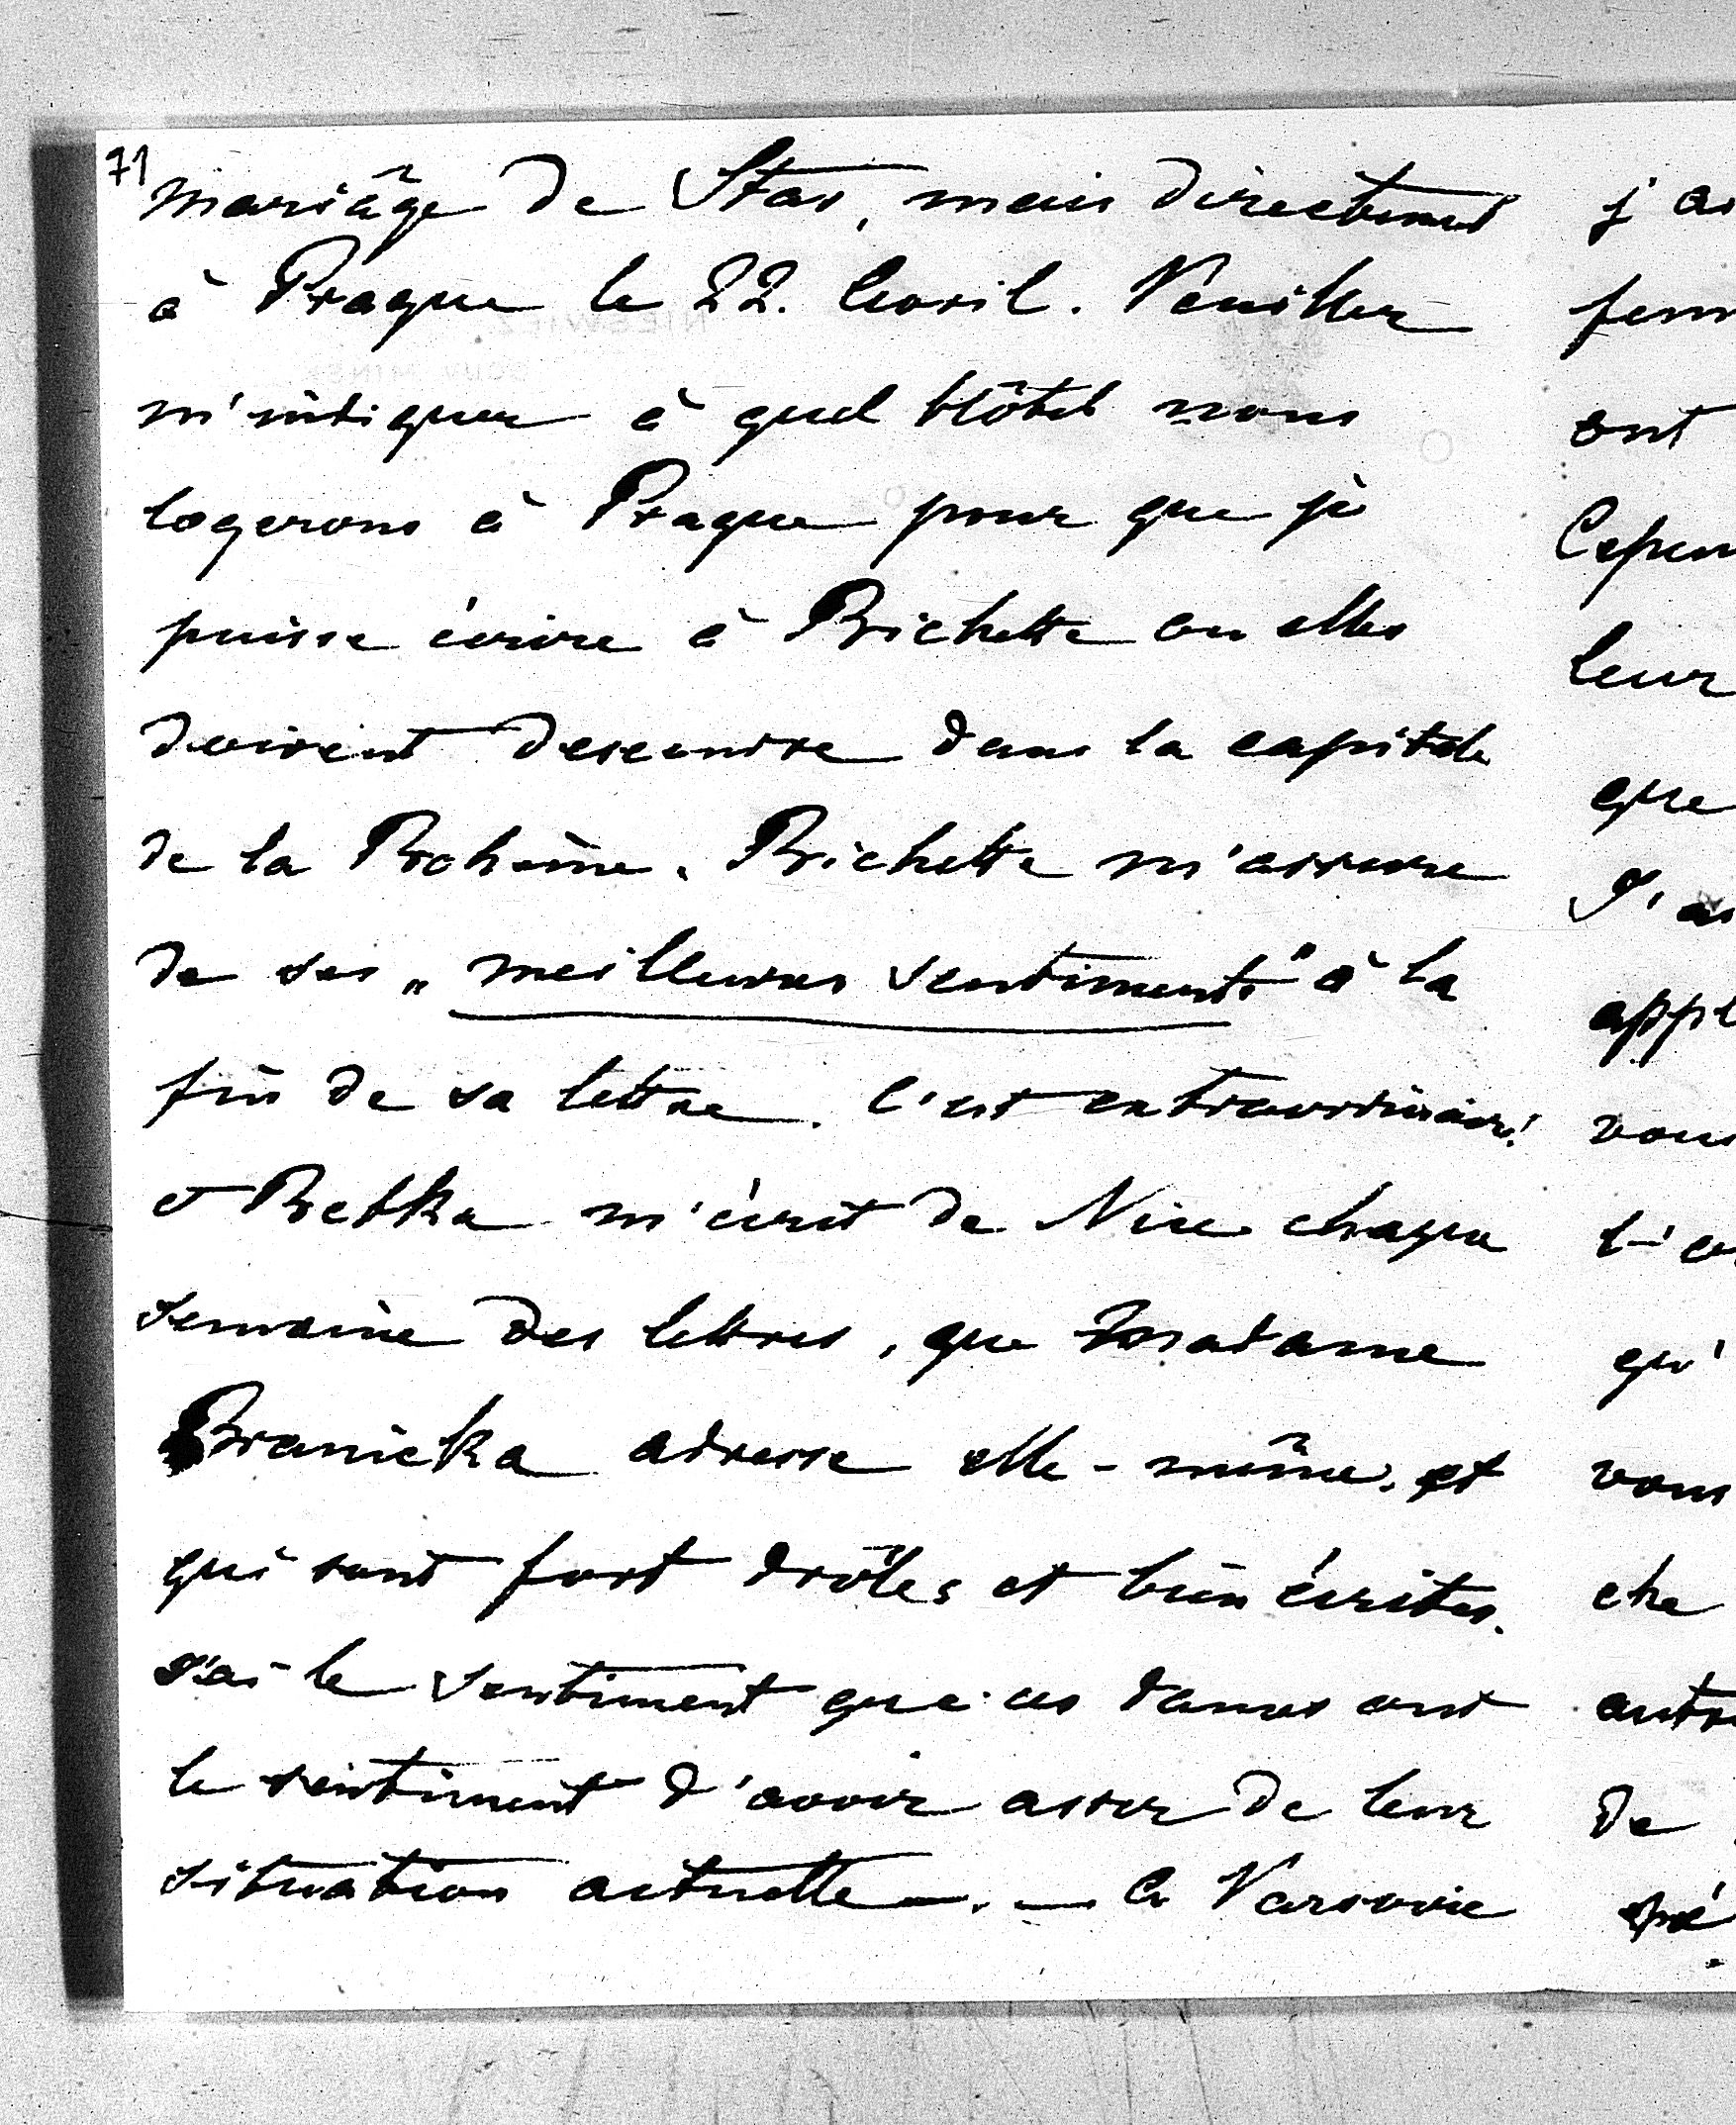 71
mariâge de Stas, mais directement
à Prague le 22. Avril. Veuillez
m'indiquer à quel hôtel nous
logerons à Prague pour que je
puisse écrire à Bichette ou elles
doivent descendre dans la capitale
de la Bohême. Bichette m'assure
de ses „meilleures sentiments" à la
fin de sa lettre. C'est extraordinaire!
et Betka m'écrit de Nice chaque
semaine des lettres, que Madame
Branicka adresse elle-même, et
qui sont fort drôles et bien écrites.
J'ai le sentiment que ces dames ont
le sentiment d'avoir assez de leur
situation actuelle —. — A Varsovie
j'ai
ont
leur
que
J'ai
vous
qu'
vous
che
de